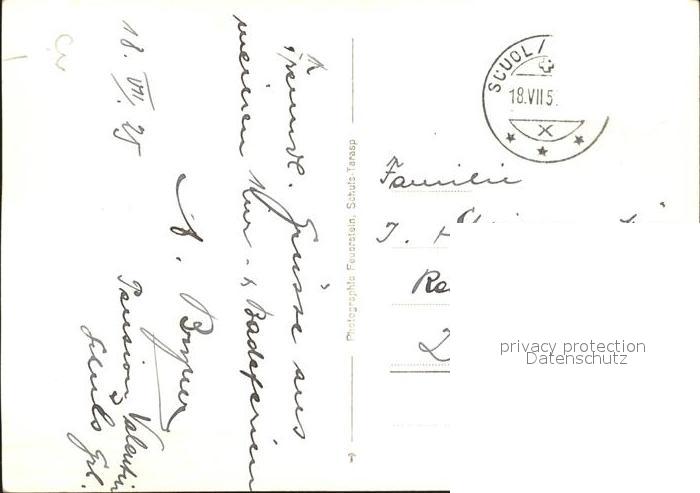 freundl. Grüsse aus
meinen Kur- & Badeferien
18. VII. 25
Pension Valentin
Schuls Grb.
Photographie Feuerstein, Schuls-Tarasp
SCUOL/
18.VII5.
X
Familie
J. H
Re
Z
privacy protection
Datenschutz